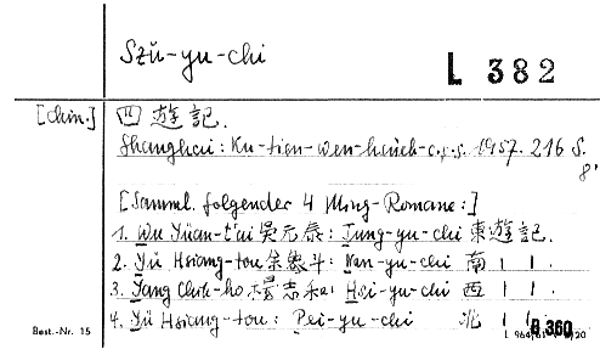 Szŭ-yu-chi
L 382
[chin.] 四遊記.
Shanghai: Ku-tien-wen-hsüeh-c.s.s. 1957. 216 S.
8'
[Samml. folgender 4 Ming-Romane:]
1. Wu Yüan-t'ai 吳元泰: Tung-yu-chi 東遊記.
2. Yü Hsiang-tou 余象斗: Nan-yu-chi 南 | |
3. Yang Chih-ho 楊志和: Hsi-yu-chi 西 | | .
4. Yü Hsiang-tou: Pei-yu-chi 北 | |
Best.-Nr. 15
B 360